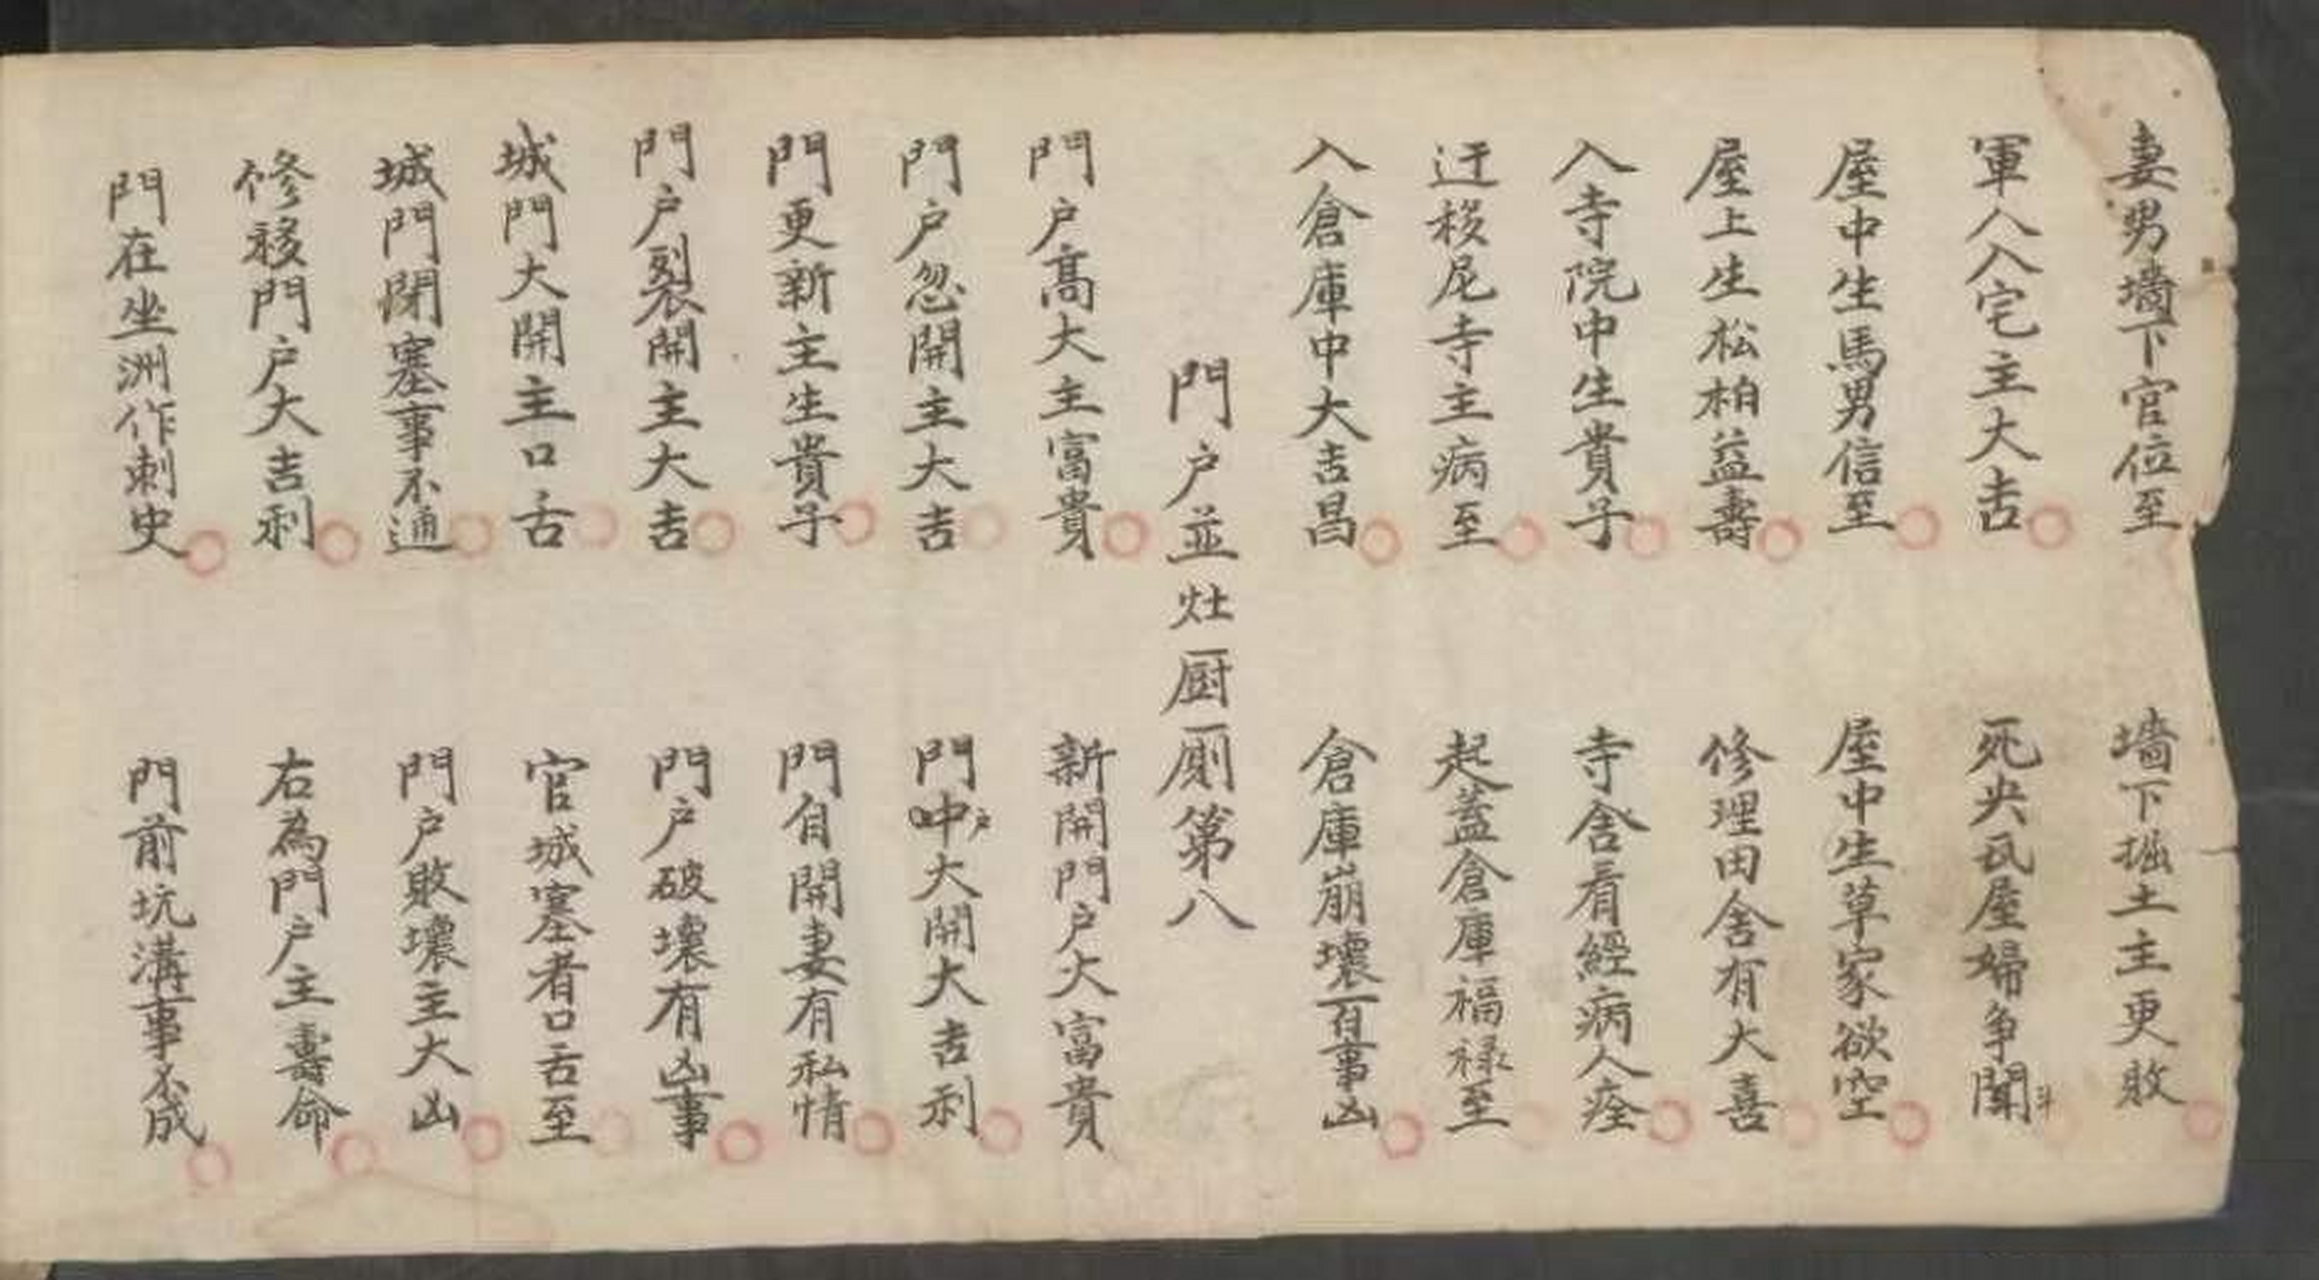 妻男墻下官位至　墻下掘土主更敗
軍人入宅主大吉　死央瓦屋婦爭鬪
屋中生馬男信至　屋中生草家欲空
屋上生松柏益壽　修理田舍有大喜
入寺院中生貴子　寺舍看經病人痊
迂移尼寺主病至　起蓋倉庫福祿至
入倉庫中大吉昌　倉庫崩壞百事凶
門户並灶厨厠第八
門户髙大主富貴　新開門户大富貴
門户忽開主大吉　門中户大開大吉利
門更新主生貴子　門自開妻有私情
門户裂開主大吉　門户破壞有凶事
城門大開主口舌　官城塞者口舌至
城門閉塞事不通　門户敗壞主大凶
修移門户大吉利　右為門户主壽命
門在坐洲作刺史　門前坑溝事不成